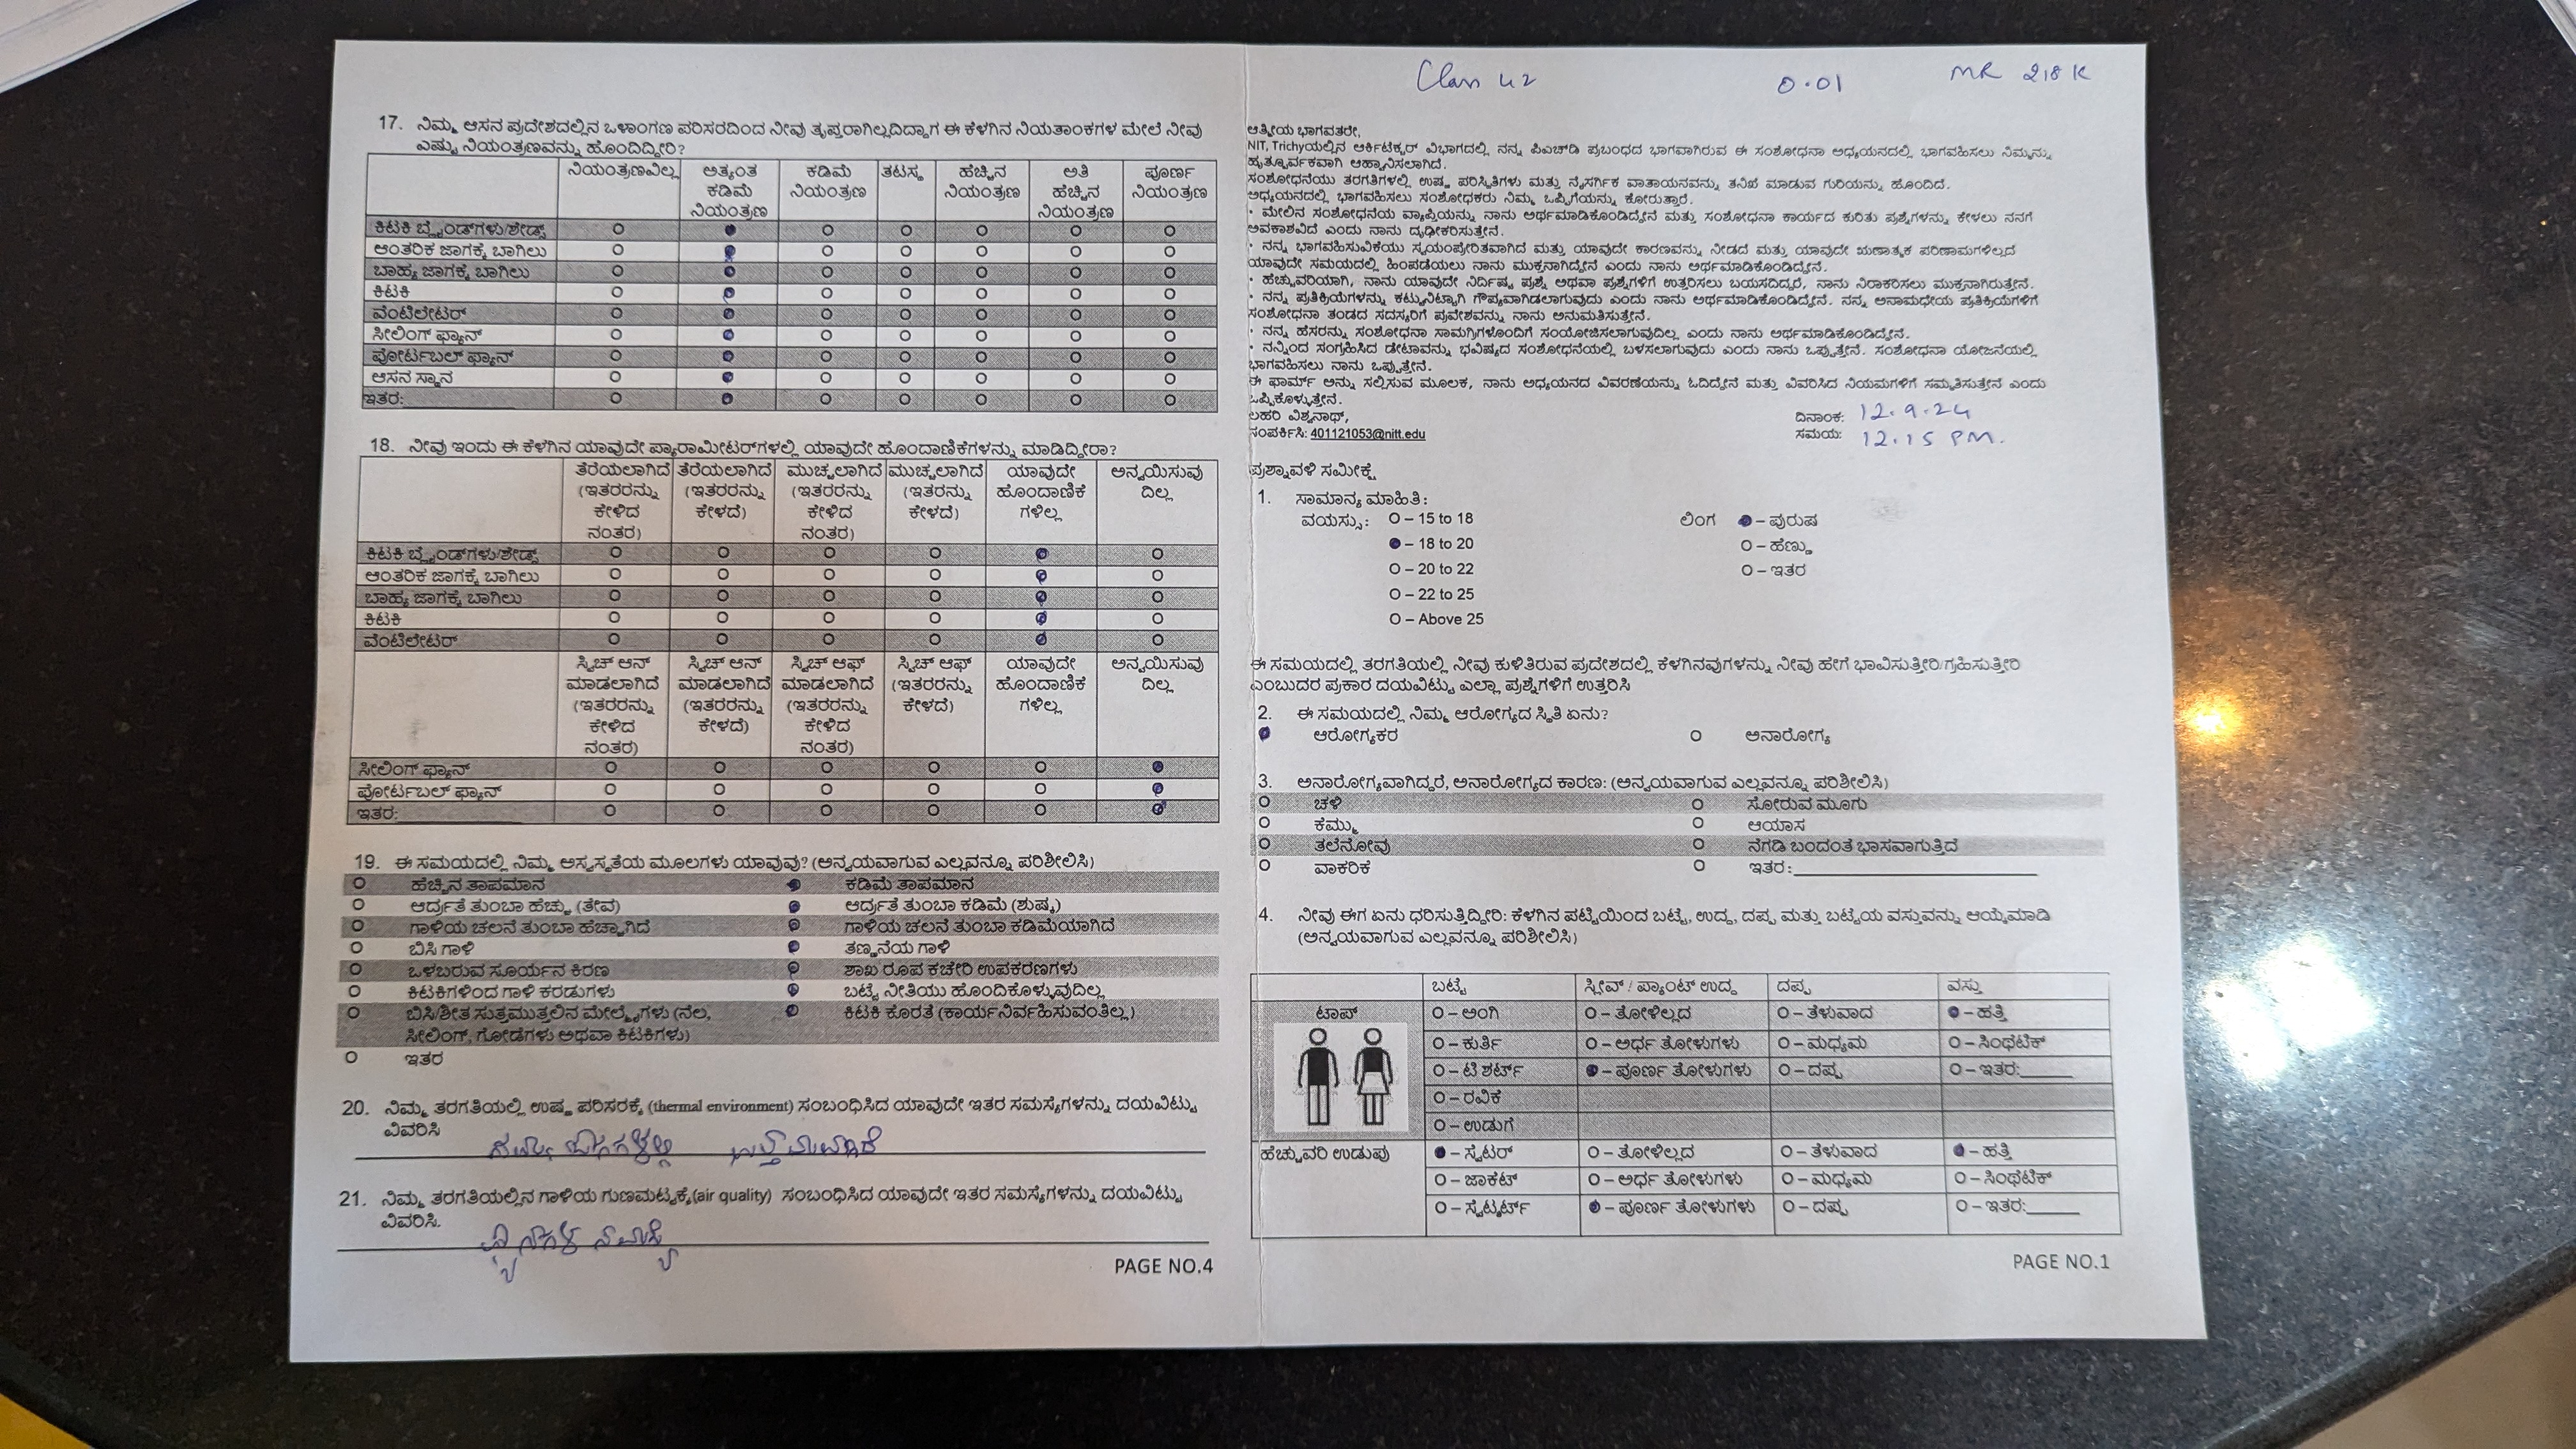 17. ನಿಮ್ಮ ಆಸನ ಪ್ರದೇಶದಲ್ಲಿನ ಒಳಾಂಗಣ ಪರಿಸರದಿಂದ ನೀವು ತೃಪ್ತರಾಗಿಲ್ಲದಿದ್ದಾಗ ಈ ಕೆಳಗಿನ ನಿಯತಾಂಕಗಳ ಮೇಲೆ ನೀವು
ಎಷ್ಟು ನಿಯಂತ್ರಣವನ್ನು ಹೊಂದಿದ್ದೀರಿ?
ನಿಯಂತ್ರಣವಿಲ್ಲ ಅತ್ಯಂತ ಕಡಿಮೆ ನಿಯಂತ್ರಣ ಕಡಿಮೆ ನಿಯಂತ್ರಣ ತಟಸ್ಥ ಹೆಚ್ಚಿನ ನಿಯಂತ್ರಣ ಅತಿ ಹೆಚ್ಚಿನ ನಿಯಂತ್ರಣ ಪೂರ್ಣ ನಿಯಂತ್ರಣ
ಕಿಟಕಿ ಬ್ಲೈಂಡ್‌ಗಳು/ಶೇಡ್ಸ್
ಆಂತರಿಕ ಜಾಗಕ್ಕೆ ಬಾಗಿಲು
ಬಾಹ್ಯ ಜಾಗಕ್ಕೆ ಬಾಗಿಲು
ಕಿಟಕಿ
ವೆಂಟಿಲೇಟರ್
ಸೀಲಿಂಗ್ ಫ್ಯಾನ್
ಪೋರ್ಟಬಲ್ ಫ್ಯಾನ್
ಆಸನ ಸ್ಥಾನ
ಇತರ:
18. ನೀವು ಇಂದು ಈ ಕೆಳಗಿನ ಯಾವುದೇ ಪ್ಯಾರಾಮೀಟರ್‌ಗಳಲ್ಲಿ ಯಾವುದೇ ಹೊಂದಾಣಿಕೆಗಳನ್ನು ಮಾಡಿದ್ದೀರಾ?
ತೆರೆಯಲಾಗಿದೆ (ಇತರರನ್ನು ಕೇಳಿದ ನಂತರ) ತೆರೆಯಲಾಗಿದೆ (ಇತರರನ್ನು ಕೇಳದೆ) ಮುಚ್ಚಲಾಗಿದೆ (ಇತರರನ್ನು ಕೇಳಿದ ನಂತರ) ಮುಚ್ಚಲಾಗಿದೆ (ಇತರನ್ನು ಕೇಳದೆ) ಯಾವುದೇ ಹೊಂದಾಣಿಕೆ ಗಳಿಲ್ಲ ಅನ್ವಯಿಸುವು ದಿಲ್ಲ
ಕಿಟಕಿ ಬ್ಲೈಂಡ್‌ಗಳು/ಶೇಡ್ಸ್
ಆಂತರಿಕ ಜಾಗಕ್ಕೆ ಬಾಗಿಲು
ಬಾಹ್ಯ ಜಾಗಕ್ಕೆ ಬಾಗಿಲು
ಕಿಟಕಿ
ವೆಂಟಿಲೇಟರ್
ಸ್ವಿಚ್ ಆನ್ ಮಾಡಲಾಗಿದೆ (ಇತರರನ್ನು ಕೇಳಿದ ನಂತರ) ಸ್ವಿಚ್ ಆನ್ ಮಾಡಲಾಗಿದೆ (ಇತರರನ್ನು ಕೇಳದೆ) ಸ್ವಿಚ್ ಆಫ್ ಮಾಡಲಾಗಿದೆ (ಇತರರನ್ನು ಕೇಳಿದ ನಂತರ) ಸ್ವಿಚ್ ಆಫ್ (ಇತರರನ್ನು ಕೇಳದೆ) ಯಾವುದೇ ಹೊಂದಾಣಿಕೆ ಗಳಿಲ್ಲ ಅನ್ವಯಿಸುವು ದಿಲ್ಲ
ಸೀಲಿಂಗ್ ಫ್ಯಾನ್
ಪೋರ್ಟಬಲ್ ಫ್ಯಾನ್
ಇತರ:
19. ಈ ಸಮಯದಲ್ಲಿ ನಿಮ್ಮ ಅಸ್ವಸ್ಥತೆಯ ಮೂಲಗಳು ಯಾವುವು? (ಅನ್ವಯವಾಗುವ ಎಲ್ಲವನ್ನೂ ಪರಿಶೀಲಿಸಿ)
ಹೆಚ್ಚಿನ ತಾಪಮಾನ ಕಡಿಮೆ ತಾಪಮಾನ
ಆರ್ದ್ರತೆ ತುಂಬಾ ಹೆಚ್ಚು (ತೇವ) ಆರ್ದ್ರತೆ ತುಂಬಾ ಕಡಿಮೆ (ಶುಷ್ಕ)
ಗಾಳಿಯ ಚಲನೆ ತುಂಬಾ ಹೆಚ್ಚಾಗಿದೆ ಗಾಳಿಯ ಚಲನೆ ತುಂಬಾ ಕಡಿಮೆಯಾಗಿದೆ
ಬಿಸಿ ಗಾಳಿ ತಣ್ಣನೆಯ ಗಾಳಿ
ಒಳಬರುವ ಸೂರ್ಯನ ಕಿರಣ ಶಾಖ ರೂಪ ಕಚೇರಿ ಉಪಕರಣಗಳು
ಕಿಟಕಿಗಳಿಂದ ಗಾಳಿ ಕರಡುಗಳು ಬಟ್ಟೆ ನೀತಿಯು ಹೊಂದಿಕೊಳ್ಳುವುದಿಲ್ಲ
ಬಿಸಿ/ಶೀತ ಸುತ್ತಮುತ್ತಲಿನ ಮೇಲ್ಮೈಗಳು (ನೆಲ, ಕಿಟಕಿ ಕೊರತೆ (ಕಾರ್ಯನಿರ್ವಹಿಸುವಂತಿಲ್ಲ)
ಸೀಲಿಂಗ್, ಗೋಡೆಗಳು ಅಥವಾ ಕಿಟಕಿಗಳು)
ಇತರ
20. ನಿಮ್ಮ ತರಗತಿಯಲ್ಲಿ ಉಷ್ಣ ಪರಿಸರಕ್ಕೆ (thermal environment) ಸಂಬಂಧಿಸಿದ ಯಾವುದೇ ಇತರ ಸಮಸ್ಯೆಗಳನ್ನು ದಯವಿಟ್ಟು
ವಿವರಿಸಿ
21. ನಿಮ್ಮ ತರಗತಿಯಲ್ಲಿನ ಗಾಳಿಯ ಗುಣಮಟ್ಟಕ್ಕೆ(air quality) ಸಂಬಂಧಿಸಿದ ಯಾವುದೇ ಇತರ ಸಮಸ್ಯೆಗಳನ್ನು ದಯವಿಟ್ಟು
ವಿವರಿಸಿ.
PAGE NO.4
Class 42 0.01 MR 218 K
ಆತ್ಮೀಯ ಭಾಗವತರೇ,
NIT, Trichyಯಲ್ಲಿನ ಆರ್ಕಿಟೆಕ್ಚರ್ ವಿಭಾಗದಲ್ಲಿ ನನ್ನ ಪಿಎಚ್‌ಡಿ ಪ್ರಬಂಧದ ಭಾಗವಾಗಿರುವ ಈ ಸಂಶೋಧನಾ ಅಧ್ಯಯನದಲ್ಲಿ ಭಾಗವಹಿಸಲು ನಿಮ್ಮನ್ನು
ಹೃತ್ಪೂರ್ವಕವಾಗಿ ಆಹ್ವಾನಿಸಲಾಗಿದೆ.
ಸಂಶೋಧನೆಯು ತರಗತಿಗಳಲ್ಲಿ ಉಷ್ಣ ಪರಿಸ್ಥಿತಿಗಳು ಮತ್ತು ನೈಸರ್ಗಿಕ ವಾತಾಯನವನ್ನು ತನಿಖೆ ಮಾಡುವ ಗುರಿಯನ್ನು ಹೊಂದಿದೆ.
ಅಧ್ಯಯನದಲ್ಲಿ ಭಾಗವಹಿಸಲು ಸಂಶೋಧಕರು ನಿಮ್ಮ ಒಪ್ಪಿಗೆಯನ್ನು ಕೋರುತ್ತಾರೆ.
• ಮೇಲಿನ ಸಂಶೋಧನೆಯ ವ್ಯಾಪ್ತಿಯನ್ನು ನಾನು ಅರ್ಥಮಾಡಿಕೊಂಡಿದ್ದೇನೆ ಮತ್ತು ಸಂಶೋಧನಾ ಕಾರ್ಯದ ಕುರಿತು ಪ್ರಶ್ನೆಗಳನ್ನು ಕೇಳಲು ನನಗೆ
ಅವಕಾಶವಿದೆ ಎಂದು ನಾನು ದೃಢೀಕರಿಸುತ್ತೇನೆ.
• ನನ್ನ ಭಾಗವಹಿಸುವಿಕೆಯು ಸ್ವಯಂಪ್ರೇರಿತವಾಗಿದೆ ಮತ್ತು ಯಾವುದೇ ಕಾರಣವನ್ನು ನೀಡದೆ ಮತ್ತು ಯಾವುದೇ ಋಣಾತ್ಮಕ ಪರಿಣಾಮಗಳಿಲ್ಲದೆ
ಯಾವುದೇ ಸಮಯದಲ್ಲಿ ಹಿಂಪಡೆಯಲು ನಾನು ಮುಕ್ತನಾಗಿದ್ದೇನೆ ಎಂದು ನಾನು ಅರ್ಥಮಾಡಿಕೊಂಡಿದ್ದೇನೆ.
• ಹೆಚ್ಚುವರಿಯಾಗಿ, ನಾನು ಯಾವುದೇ ನಿರ್ದಿಷ್ಟ ಪ್ರಶ್ನೆ ಅಥವಾ ಪ್ರಶ್ನೆಗಳಿಗೆ ಉತ್ತರಿಸಲು ಬಯಸದಿದ್ದರೆ, ನಾನು ನಿರಾಕರಿಸಲು ಮುಕ್ತನಾಗಿರುತ್ತೇನೆ.
• ನನ್ನ ಪ್ರತಿಕ್ರಿಯೆಗಳನ್ನು ಕಟ್ಟುನಿಟ್ಟಾಗಿ ಗೌಪ್ಯವಾಗಿಡಲಾಗುವುದು ಎಂದು ನಾನು ಅರ್ಥಮಾಡಿಕೊಂಡಿದ್ದೇನೆ. ನನ್ನ ಅನಾಮಧೇಯ ಪ್ರತಿಕ್ರಿಯೆಗಳಿಗೆ
ಸಂಶೋಧನಾ ತಂಡದ ಸದಸ್ಯರಿಗೆ ಪ್ರವೇಶವನ್ನು ನಾನು ಅನುಮತಿಸುತ್ತೇನೆ.
• ನನ್ನ ಹೆಸರನ್ನು ಸಂಶೋಧನಾ ಸಾಮಗ್ರಿಗಳೊಂದಿಗೆ ಸಂಯೋಜಿಸಲಾಗುವುದಿಲ್ಲ ಎಂದು ನಾನು ಅರ್ಥಮಾಡಿಕೊಂಡಿದ್ದೇನೆ.
• ನನ್ನಿಂದ ಸಂಗ್ರಹಿಸಿದ ಡೇಟಾವನ್ನು ಭವಿಷ್ಯದ ಸಂಶೋಧನೆಯಲ್ಲಿ ಬಳಸಲಾಗುವುದು ಎಂದು ನಾನು ಒಪ್ಪುತ್ತೇನೆ. ಸಂಶೋಧನಾ ಯೋಜನೆಯಲ್ಲಿ
ಭಾಗವಹಿಸಲು ನಾನು ಒಪ್ಪುತ್ತೇನೆ.
ಈ ಫಾರ್ಮ್ ಅನ್ನು ಸಲ್ಲಿಸುವ ಮೂಲಕ, ನಾನು ಅಧ್ಯಯನದ ವಿವರಣೆಯನ್ನು ಓದಿದ್ದೇನೆ ಮತ್ತು ವಿವರಿಸಿದ ನಿಯಮಗಳಿಗೆ ಸಮ್ಮತಿಸುತ್ತೇನೆ ಎಂದು
ಒಪ್ಪಿಕೊಳ್ಳುತ್ತೇನೆ.
ಲಹರಿ ವಿಶ್ವನಾಥ್, ದಿನಾಂಕ: 12.9.24
ಸಂಪರ್ಕಿಸಿ: 401121053@nitt.edu ಸಮಯ: 12.15 PM.
ಪ್ರಶ್ನಾವಳಿ ಸಮೀಕ್ಷೆ
1. ಸಾಮಾನ್ಯ ಮಾಹಿತಿ:
ವಯಸ್ಸು: O – 15 to 18 ಲಿಂಗ – ಪುರುಷ
– 18 to 20 O – ಹೆಣ್ಣು
O – 20 to 22 O – ಇತರ
O – 22 to 25
O – Above 25
ಈ ಸಮಯದಲ್ಲಿ ತರಗತಿಯಲ್ಲಿ ನೀವು ಕುಳಿತಿರುವ ಪ್ರದೇಶದಲ್ಲಿ ಕೆಳಗಿನವುಗಳನ್ನು ನೀವು ಹೇಗೆ ಭಾವಿಸುತ್ತೀರಿ/ಗ್ರಹಿಸುತ್ತೀರಿ
ಎಂಬುದರ ಪ್ರಕಾರ ದಯವಿಟ್ಟು ಎಲ್ಲಾ ಪ್ರಶ್ನೆಗಳಿಗೆ ಉತ್ತರಿಸಿ
2. ಈ ಸಮಯದಲ್ಲಿ ನಿಮ್ಮ ಆರೋಗ್ಯದ ಸ್ಥಿತಿ ಏನು?
ಆರೋಗ್ಯಕರ ಅನಾರೋಗ್ಯ
3. ಅನಾರೋಗ್ಯವಾಗಿದ್ದರೆ, ಅನಾರೋಗ್ಯದ ಕಾರಣ: (ಅನ್ವಯವಾಗುವ ಎಲ್ಲವನ್ನೂ ಪರಿಶೀಲಿಸಿ)
ಚಳಿ ಸೋರುವ ಮೂಗು
ಕೆಮ್ಮು ಆಯಾಸ
ತಲೆನೋವು ನೆಗಡಿ ಬಂದಂತೆ ಭಾಸವಾಗುತ್ತಿದೆ
ವಾಕರಿಕೆ ಇತರ:
4. ನೀವು ಈಗ ಏನು ಧರಿಸುತ್ತಿದ್ದೀರಿ: ಕೆಳಗಿನ ಪಟ್ಟಿಯಿಂದ ಬಟ್ಟೆ, ಉದ್ದ, ದಪ್ಪ ಮತ್ತು ಬಟ್ಟೆಯ ವಸ್ತುವನ್ನು ಆಯ್ಕೆಮಾಡಿ
(ಅನ್ವಯವಾಗುವ ಎಲ್ಲವನ್ನೂ ಪರಿಶೀಲಿಸಿ)
ಬಟ್ಟೆ ಸ್ಲೀವ್ / ಪ್ಯಾಂಟ್ ಉದ್ದ ದಪ್ಪ ವಸ್ತು
ಟಾಪ್ O – ಅಂಗಿ O – ತೋಳಿಲ್ಲದ O – ತೆಳುವಾದ – ಹತ್ತಿ
O – ಕುರ್ತಿ O – ಅರ್ಧ ತೋಳುಗಳು O – ಮಧ್ಯಮ O – ಸಿಂಥೆಟಿಕ್
O – ಟಿ ಶರ್ಟ್ – ಪೂರ್ಣ ತೋಳುಗಳು O – ದಪ್ಪ O – ಇತರ:
O – ರವಿಕೆ
O – ಉಡುಗೆ
ಹೆಚ್ಚುವರಿ ಉಡುಪು – ಸ್ವೆಟರ್ O – ತೋಳಿಲ್ಲದ O – ತೆಳುವಾದ – ಹತ್ತಿ
O – ಜಾಕೆಟ್ O – ಅರ್ಧ ತೋಳುಗಳು O – ಮಧ್ಯಮ O – ಸಿಂಥೆಟಿಕ್
O – ಸ್ವೆಟ್ಶರ್ಟ್ – ಪೂರ್ಣ ತೋಳುಗಳು O – ದಪ್ಪ O – ಇತರ:
PAGE NO.1